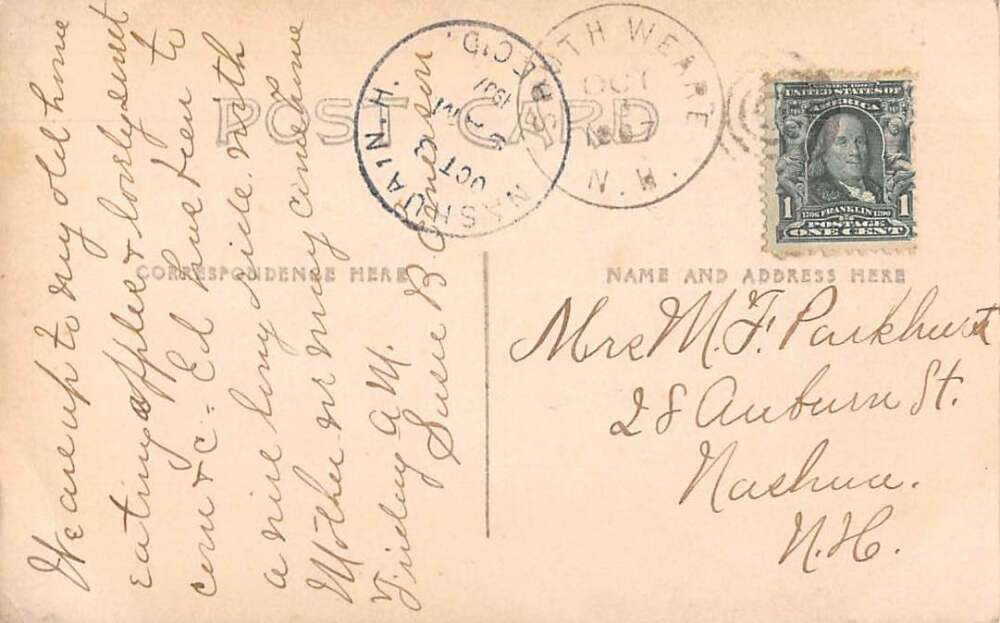 POST CARD
CORRESPONDENCE HERE
NAME AND ADDRESS HERE
NASHUA N.H.
OCT 3
1907
REC'D.
TH WEARE
OCT
1907
N.H.
UNITED STATES OF
AMERICA
1 1706 FRANKLIN 1790 1
POSTAGE
ONE CENT
We are up to my old home
eating apples & lovely sweet
corn & c - Ed have been to
a nice long ride with
Mother or may come home
Friday A.M.
Susie B.
Mrs M. F. Parkhurst
28 Auburn St.
Nashua.
N.H.